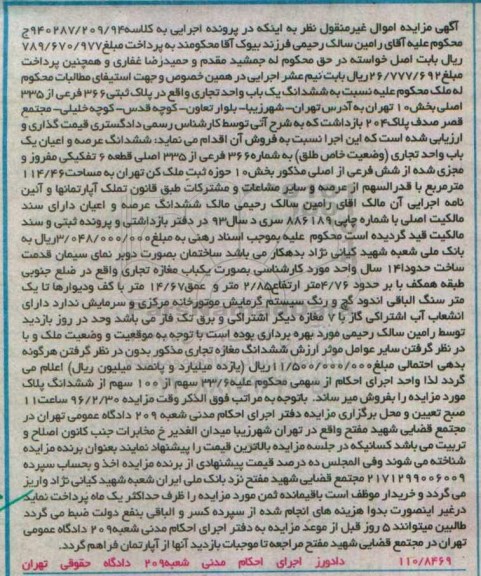 آگهی مزایده اموال غیرمنقول نظر به اینکه در پرونده اجرایی به کلاسه۹۴۰۲۸۷/۲۰۹/۹۴ج
محکوم علیه آقای رامین سالک رحیمی فرزند بیوک آقا محکومند به پرداخت مبلغ۷۸۹/۶۷۰/۹۷۷
ریال بابت اصل خواسته در حق محکوم له جمشید مقدم و حمیدرضا غفاری و همچنین پرداخت
مبلغ۲۶/۷۷۷/۶۹۲ریال بابت نیم عشر اجرایی در همین خصوص و جهت استیفای مطالبات محکوم
له ملک محکوم علیه نسبت به ششدانگ یک باب واحد تجاری واقع در پلاک ثبتی۳۶۶ فرعی از ۳۳۵
اصلی بخش۱۰ تهران به آدرس تهران- شهرزیبا- بلوار تعاون- کوچه قدس- کوچه خلیلی- مجتمع
قصر صدف پلاک۲۰۴ بازداشت که به شرح آتی توسط کارشناس رسمی دادگستری قیمت گذاری و
ارزیابی شده است که این اجرا نسبت به فروش آن اقدام می نماید: ششدانگ عرصه و اعیان یک
باب واحد تجاری (وضعیت خاص طلق) به شماره۳۶۶ فرعی از ۳۳۵ اصلی قطعه ۶ تفکیکی مفروز و
مجزی شده از شش فرعی از اصلی مذکور بخش۱۰ حوزه ثبت ملک کن تهران به مساحت۱۱۴/۴۶
مترمربع با قدرالسهم از عرصه و سایر مشاعات و مشترکات طبق قانون تملک آپارتمانها و آئین
نامه اجرایی آن مالک آقای رامین سالک رحیمی مالک ششدانگ عرصه و اعیان دارای سند
مالکیت اصلی با شماره چاپی۸۸۶۱۸۹ سری د سال۹۳ در دفتر بازداشتی و پرونده ثبتی و سند
مالکیت قید گردیده است محکوم علیه بموجب اسناد رهنی به مبلغ۳/۰۴۸/۰۰۰/۰۰۰ریال به
بانک ملی شعبه شهید کیانی نژاد بدهکار می باشد ساختمان بصورت دوبر نمای سیمان قدمت
ساخت حدودا۱۴ سال واحد مورد کارشناسی بصورت یکباب مغازه تجاری واقع در ضلع جنوبی
طبقه همکف با بر حدود ۴/۷۶متر ارتفاع۲/۸۵ متر و عمق۱۴/۶۷ متر با کف ودیوارها تا یک
متر سنگ الباقی اندود گچ و رنگ سیستم گرمایش موتورخانه مرکزی و سرمایش ندارد دارای
انشعاب آب اشتراکی گاز با ۷ مغازه دیگر اشتراکی و برق تک فاز می باشد وحد در روز بازدید
توسط رامین سالک رحیمی مورد بهره برداری بوده است با توجه به موقعیت و وضعیت ملک و با
در نظر گرفتن سایر عوامل موثر ارزش ششدانگ مغازه تجاری مذکور بدون در نظر گرفتن هرگونه
بدهی احتمالی مبلغ۱۱/۵۰۰/۰۰۰/۰۰۰ریال (یازده میلیارد و پانصد میلیون ریال) اعلام می
گردد لذا واحد اجرای احکام از سهمی محکوم علیه۳۳/۶ سهم از ۱۰۰ سهم از ششدانگ پلاک
مورد مزایده را بفروش میر ساند. باتوجه به مراتب فوق الذکر وقت مزایده ۹۶/۲/۳۰ ساعت۱۱
صبح تعیین و محل برگزاری مزایده دفتر اجرای احکام مدنی شعبه ۲۰۹ دادگاه عمومی تهران در
مجتمع قضایی شهید مفتح واقع در تهران شهرزیبا میدان الغدیر خ مخابرات جنب کانون اصلاح و
تربیت می باشد کسانیکه در جلسه مزایده بالاترین قیمت را پیشنهاد نمایند بعنوان برنده مزایده
شناخته می شوند وفی المجلس ده درصد قیمت پیشنهادی از برنده مزایده اخذ و بحساب سپرده
۲۱۷۱۲۹۹۰۰۶۰۰۹ مجتمع قضایی شهید مفتح نزد بانک ملی ایران شعبه شهید کیانی نژاد واریز
می گردد و خریدار موظف است باقیمانده ثمن مورد مزایده را ظرف حداکثر یک ماه پرداخت نماید
درغیر اینصورت بدوا هزینه های انجام شده از سپرده کسر و الباقی بنفع دولت ضبط می گردد
طالبین میتوانند ۵ روز قبل از موعد مزایده به دفتر اجرای احکام مدنی شعبه۲۰۹ دادگاه عمومی
تهران در مجتمع قضایی شهید مفتح مراجعه تا موجبات بازدید آنها از آپارتمان فراهم گردد.
۱۱۰/۸۴۶۹ دادورز اجرای احکام مدنی شعبه۲۰۹ دادگاه حقوقی تهران